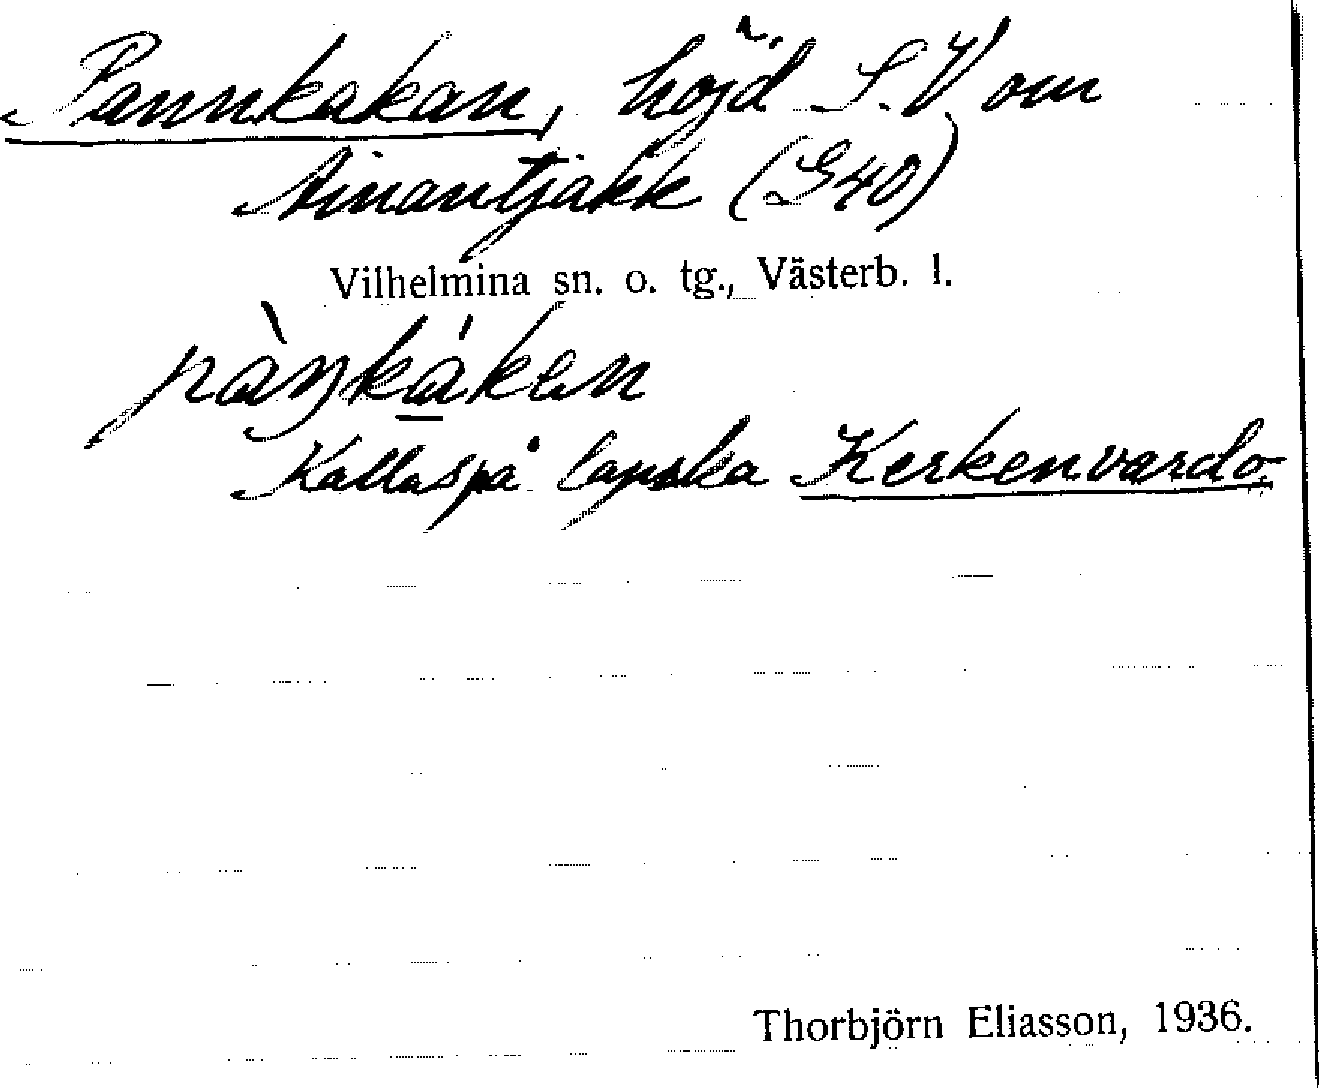 Pannkakan, höjd S.V om
Ainantjakk (G40)
Vilhelmina sn. o. tg., Västerb. l.
pàŋkákan
Kallas på lapska Kerkenvardo.
Thorbjörn Eliasson, 1936.